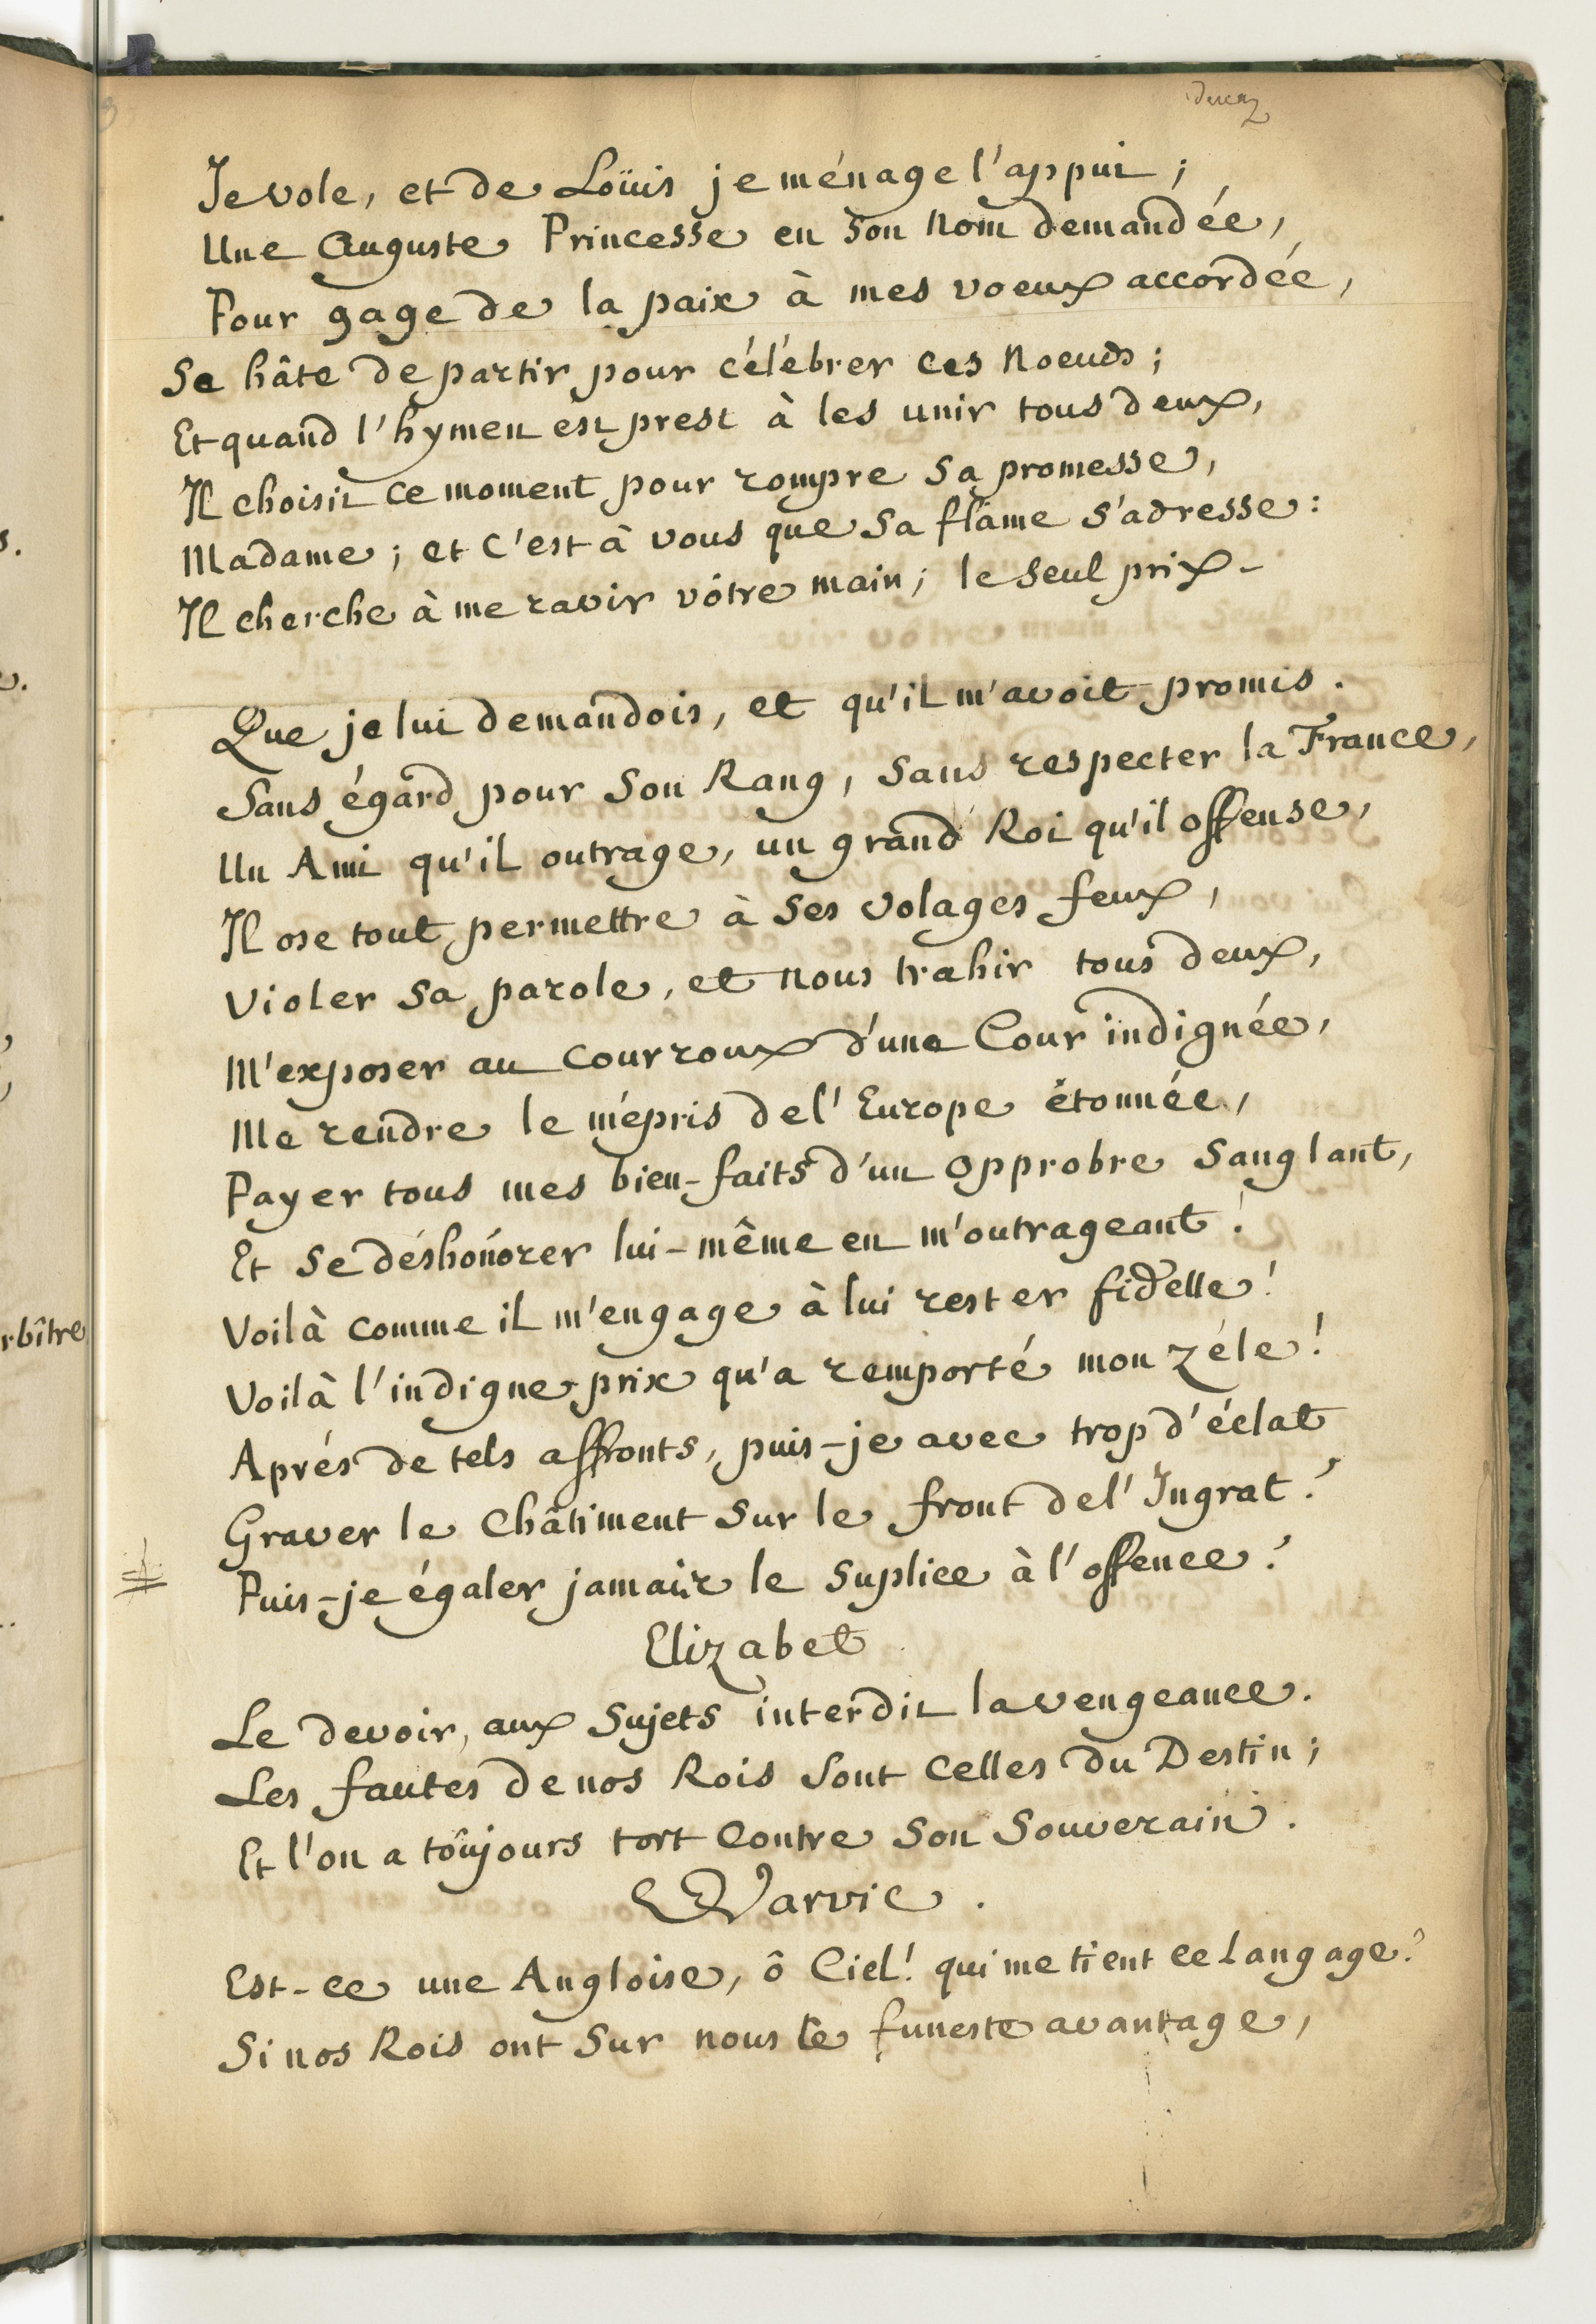 Je vole, et de Loüis je ménage l'appui ;
Une Auguste Princesse en son nom demandée,
Pour gage de la paix à mes voeux accordée,
Se hâte de partir pour célébrer ces noeuds ;
Et quand l'hymen est prest à les unir tous deux,
Il choisit ce moment pour rompre sa promesse,
Madame ; et c'est à vous que sa flâme s'adresse :
Il cherche à me ravir vôtre main ; le seul prix -
Que je lui demandois, et qu'il m'avoit promis.
Sans égard pour son Rang, sans respecter la France,
Un Ami qu'il outrage, un grand Roi qu'il offense,
Il ose tout permettre à ses volages feux,
Violer sa parole, et nous trahir tous deux,
M'exposer au courroux d'une Cour indignée,
Me rendre le mépris de l'Europe étonnée,
Payer tous mes bien-faits d'un opprobre sanglant,
Et se déshonorer lui-même en m'outrageant !
Voilà comme il m'engage à lui rester fidelle !
Voilà l'indigne prix qu'a remporté mon zéle !
Aprés de tels affronts, puis-je avec trop d'éclat
Graver le Châtiment sur le front de l'Ingrat ?
Puis-je égaler jamais le suplice à l'offence ?
Elizabet
Le devoir, aux sujets interdit la vengeance.
Les fautes de nos Rois sont celles du Destin ;
Et l'on a toûjours tort contre son souverain.
Warvic.
Est-ce une Angloise, ô Ciel ! qui me tient ce langage ?
Si nos Rois ont sur nous le funeste avantage,
rbître